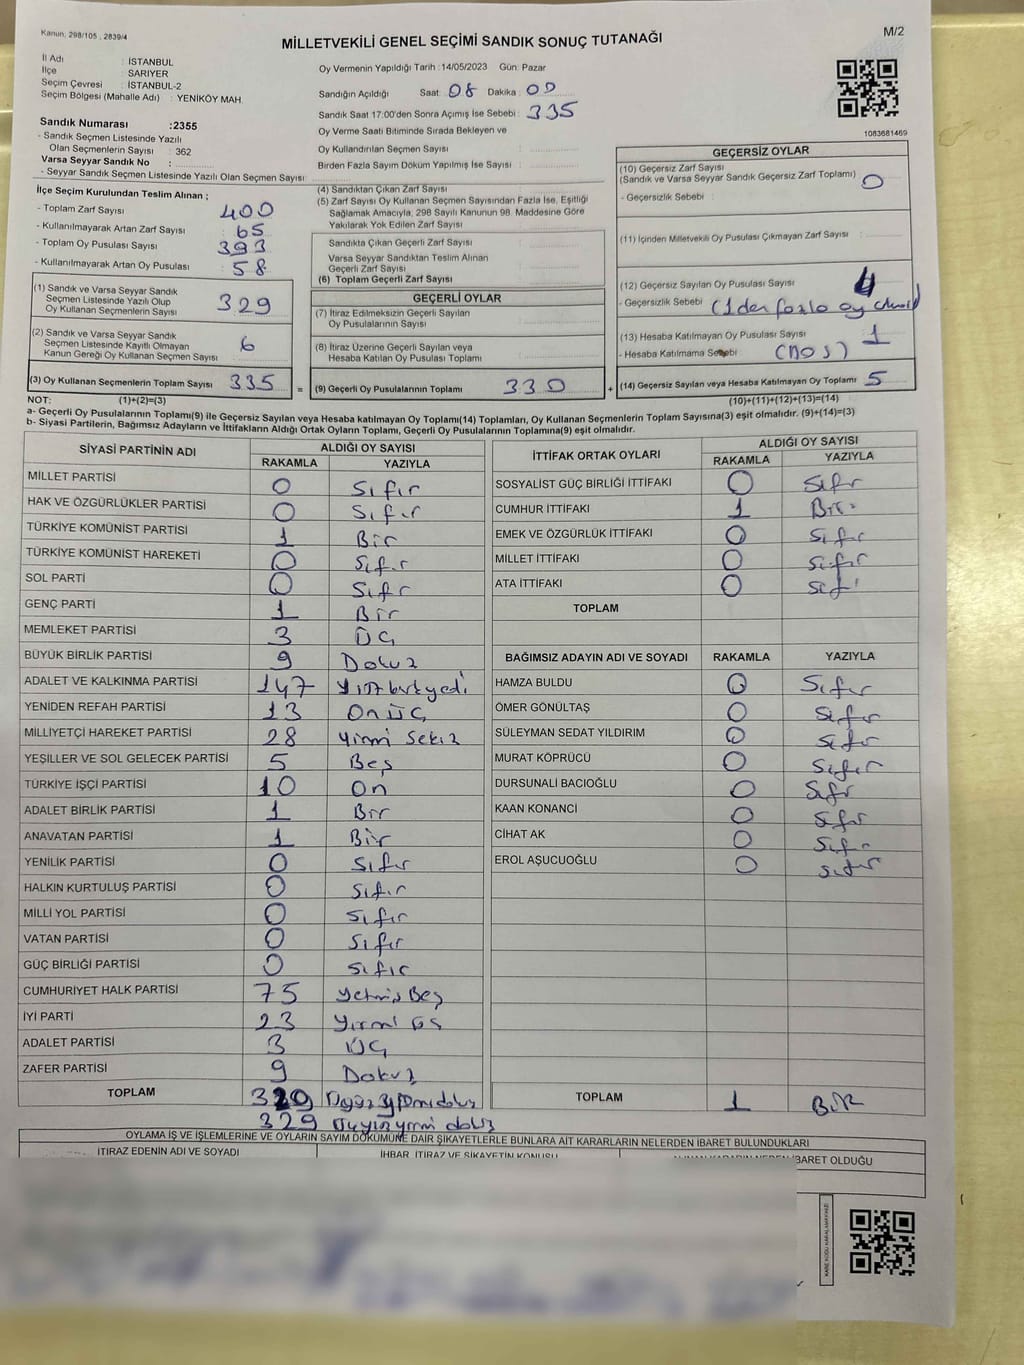 Kanun: 298/105 , 2839/4
M/2
MİLLETVEKİLİ GENEL SEÇİMİ SANDIK SONUÇ TUTANAĞI
İl Adı : İSTANBUL
İlçe : SARIYER
Seçim Çevresi : İSTANBUL-2
Seçim Bölgesi (Mahalle Adı) : YENİKÖY MAH.
Sandık Numarası :2355
- Sandık Seçmen Listesinde Yazılı
Olan Seçmenlerin Sayısı : 362
Varsa Seyyar Sandık No :
- Seyyar Sandık Seçmen Listesinde Yazılı Olan Seçmen Sayısı:
Oy Vermenin Yapıldığı Tarih :14/05/2023 Gün: Pazar
Sandığın Açıldığı Saat: 08 Dakika: 00
Sandık Saat 17:00'den Sonra Açımış İse Sebebi : 335
Oy Verme Saati Bitiminde Sırada Bekleyen ve
Oy Kullandırılan Seçmen Sayısı :
Birden Fazla Sayım Döküm Yapılmış İse Sayısı :
1083681469
İlçe Seçim Kurulundan Teslim Alınan ;
- Toplam Zarf Sayısı 400
- Kullanılmayarak Artan Zarf Sayısı 65
- Toplam Oy Pusulası Sayısı 393
- Kullanılmayarak Artan Oy Pusulası 58
(1) Sandık ve Varsa Seyyar Sandık
Seçmen Listesinde Yazılı Olup
Oy Kullanan Seçmenlerin Sayısı 329
(2) Sandık ve Varsa Seyyar Sandık
Seçmen Listesinde Kayıtlı Olmayan
Kanun Gereği Oy Kullanan Seçmen Sayısı 6
(3) Oy Kullanan Seçmenlerin Toplam Sayısı 335 =
(4) Sandıktan Çıkan Zarf Sayısı
(5) Zarf Sayısı Oy Kullanan Seçmen Sayısından Fazla İse, Eşitliği
Sağlamak Amacıyla, 298 Sayılı Kanunun 98. Maddesine Göre
Yakılarak Yok Edilen Zarf Sayısı
Sandıkta Çıkan Geçerli Zarf Sayısı
Varsa Seyyar Sandıktan Teslim Alınan
Geçerli Zarf Sayısı
(6) Toplam Geçerli Zarf Sayısı
GEÇERLİ OYLAR
(7) İtiraz Edilmeksizin Geçerli Sayılan
Oy Pusulalarının Sayısı
(8) İtiraz Üzerine Geçerli Sayılan veya
Hesaba Katılan Oy Pusulası Toplamı
(9) Geçerli Oy Pusulalarının Toplamı 330 +
GEÇERSİZ OYLAR
(10) Geçersiz Zarf Sayısı
(Sandık ve Varsa Seyyar Sandık Geçersiz Zarf Toplamı) 0
- Geçersizlik Sebebi :
(11) İçinden Milletvekili Oy Pusulası Çıkmayan Zarf Sayısı :
(12) Geçersiz Sayılan Oy Pusulası Sayısı 4
- Geçersizlik Sebebi (1 den fazla oy
(13) Hesaba Katılmayan Oy Pusulası Sayısı 1
- Hesaba Katılmama Sebebi (BOŞ)
(14) Geçersiz Sayılan veya Hesaba Katılmayan Oy Toplamı 5
NOT: (1)+(2)=(3)
(10)+(11)+(12)+(13)=(14)
a- Geçerli Oy Pusulalarının Toplamı(9) ile Geçersiz Sayılan veya Hesaba katılmayan Oy Toplamı(14) Toplamları, Oy Kullanan Seçmenlerin Toplam Sayısına(3) eşit olmalıdır. (9)+(14)=(3)
b- Siyasi Partilerin, Bağımsız Adayların ve İttifakların Aldığı Ortak Oyların Toplamı, Geçerli Oy Pusulalarının Toplamına(9) eşit olmalıdır.
SİYASİ PARTİNİN ADI ALDIĞI OY SAYISI
RAKAMLA YAZIYLA
MİLLET PARTİSİ 0 Sıfır
HAK VE ÖZGÜRLÜKLER PARTİSİ 0 Sıfır
TÜRKİYE KOMÜNİST PARTİSİ 1 Bir
TÜRKİYE KOMÜNİST HAREKETİ 0 Sıfır
SOL PARTİ 0 Sıfır
GENÇ PARTİ 1 Bir
MEMLEKET PARTİSİ 3 ÜÇ
BÜYÜK BİRLİK PARTİSİ 9 Dokuz
ADALET VE KALKINMA PARTİSİ 147 Yüzkırkyedi
YENİDEN REFAH PARTİSİ 13 OnÜÇ
MİLLİYETÇİ HAREKET PARTİSİ 28 Yirmi Sekiz
YEŞİLLER VE SOL GELECEK PARTİSİ 5 Beş
TÜRKİYE İŞÇİ PARTİSİ 10 On
ADALET BİRLİK PARTİSİ 1 Bir
ANAVATAN PARTİSİ 1 Bir
YENİLİK PARTİSİ 0 Sıfır
HALKIN KURTULUŞ PARTİSİ 0 Sıfır
MİLLİ YOL PARTİSİ 0 Sıfır
VATAN PARTİSİ 0 Sıfır
GÜÇ BİRLİĞİ PARTİSİ 0 Sıfır
CUMHURİYET HALK PARTİSİ 75 Yetmiş Beş
İYİ PARTİ 23 Yirmi üç
ADALET PARTİSİ 3 ÜÇ
ZAFER PARTİSİ 9 Dokuz
TOPLAM 329 Üçyüzyirmidokuz
329 Üçyüzyirmi dokuz
İTTİFAK ORTAK OYLARI ALDIĞI OY SAYISI
RAKAMLA YAZIYLA
SOSYALİST GÜÇ BİRLİĞİ İTTİFAKI 0 Sıfır
CUMHUR İTTİFAKI 1 Bir
EMEK VE ÖZGÜRLÜK İTTİFAKI 0 Sıfır
MİLLET İTTİFAKI 0 Sıfır
ATA İTTİFAKI 0 Sıfır
TOPLAM
BAĞIMSIZ ADAYIN ADI VE SOYADI RAKAMLA YAZIYLA
HAMZA BULDU 0 Sıfır
ÖMER GÖNÜLTAŞ 0 Sıfır
SÜLEYMAN SEDAT YILDIRIM 0 Sıfır
MURAT KÖPRÜCÜ 0 Sıfır
DURSUNALİ BACIOĞLU 0 Sıfır
KAAN KONANCİ 0 Sıfır
CİHAT AK 0 Sıfır
EROL AŞUCUOĞLU 0 Sıfır
TOPLAM 1 BİR
OYLAMA İŞ VE İŞLEMLERİNE VE OYLARIN SAYIM DÖKÜMÜNE DAİR ŞİKAYETLERLE BUNLARA AİT KARARLARIN NELERDEN İBARET BULUNDUKLARI
İTİRAZ EDENİN ADI VE SOYADI İHBAR, İTİRAZ VE ŞİKAYETİN KONUSU ALINAN KARARIN NEDEN İBARET OLDUĞU